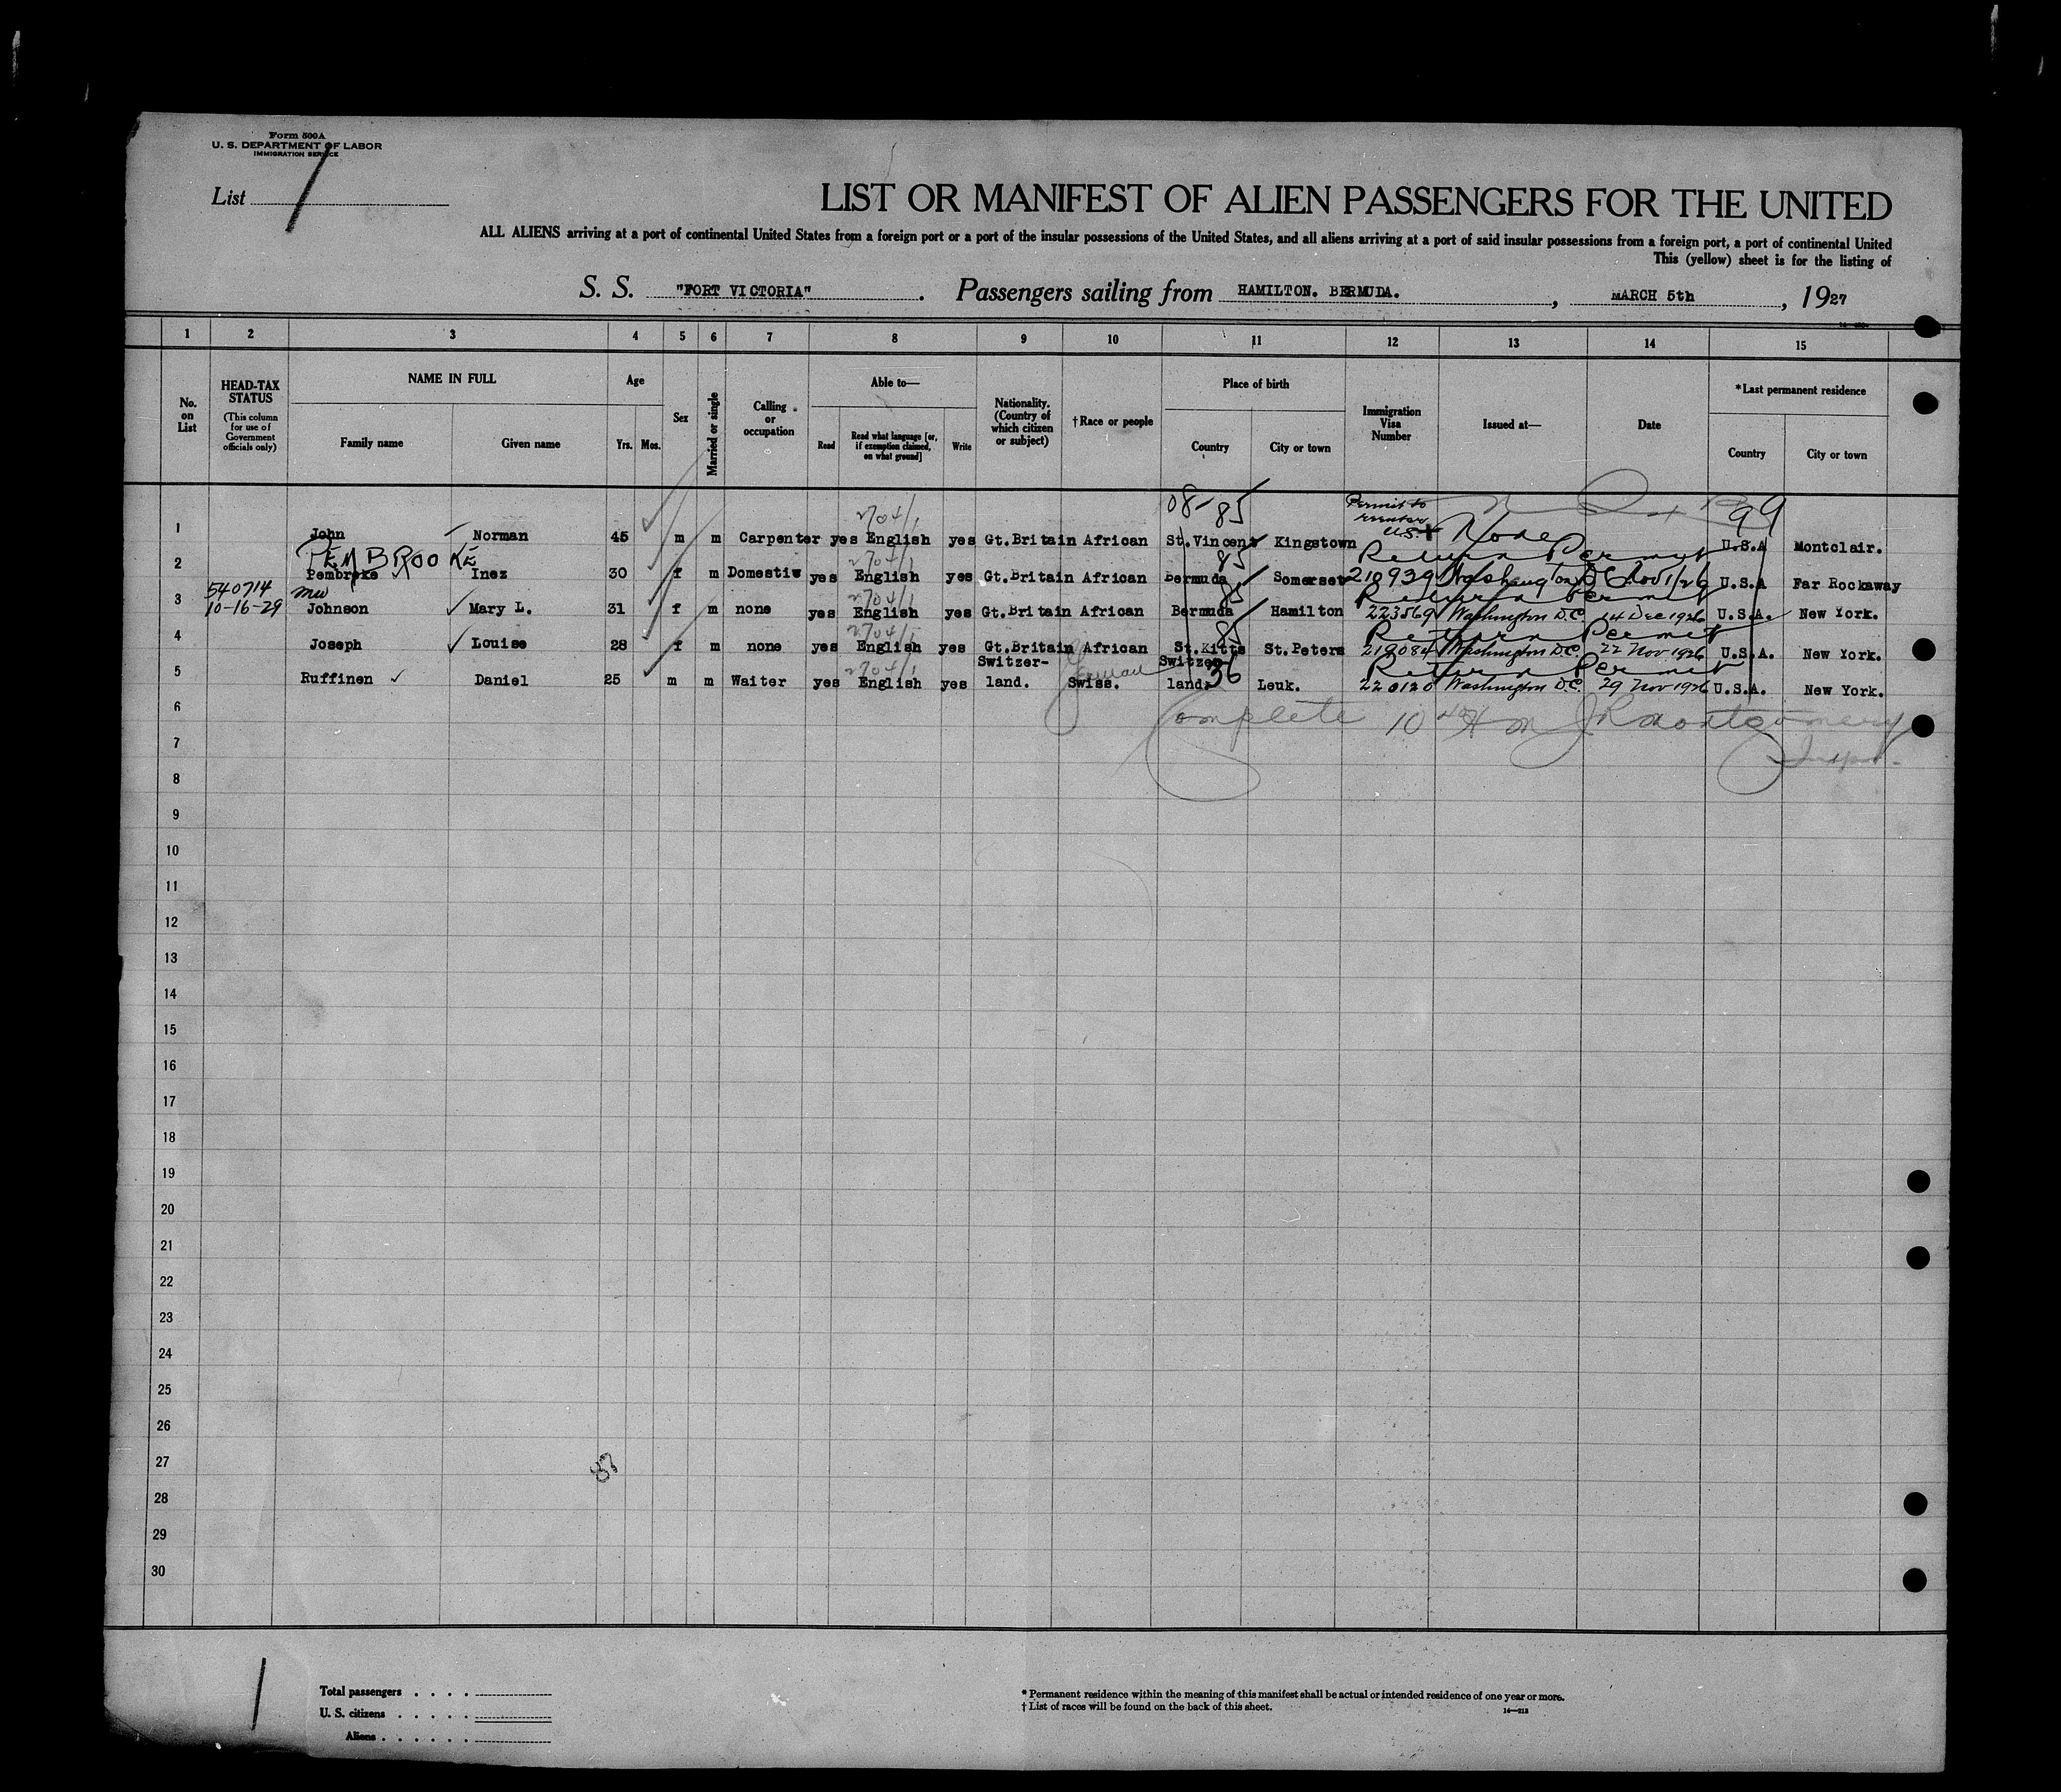 Form 500A
U. S. DEPARTMENT OF LABOR
IMMIGRATION SERVICE
List 1
LIST OR MANIFEST OF ALIEN PASSENGERS FOR THE UNITED
ALL ALIENS arriving at a port of continental United States from a foreign port or a port of the insular possessions of the United States, and all aliens arriving at a port of said insular possessions from a foreign port, a port of continental United
This (yellow) sheet is for the listing of
S. S. "FORT VICTORIA" . Passengers sailing from HAMILTON. BERMUDA. , MARCH 5th , 1927
1 2 3 4 5 6 7 8 9 10 11 12 13 14 15
No. on List
HEAD-TAX STATUS
(This column for use of Government officials only)
NAME IN FULL
Family name Given name
Age
Yrs. Mos.
Sex
Married or single
Calling or occupation
Able to—
Read Read what language [or, if exemption claimed, on what ground] Write
Nationality. (Country of which citizen or subject)
†Race or people
Place of birth
Country City or town
Immigration Visa Number
Issued at—
Date
*Last permanent residence
Country City or town
08-85 Permit to reenter U.S. 99
2704/1
1 John Norman 45 m m Carpenter yes English yes Gt.Britain African St.Vincent Kingstown None U.S.A Montclair.
PEMBROOKE 2704/1 85 Return Permit
2 Pembroke Inez 30 f m Domestiv yes English yes Gt.Britain African Bermuda Somerset 210939 Washington DC Nov 1/26 U.S.A Far Rockaway
540714 mw 2704/1 85 Return Permit
3 10-16-29 Johnson Mary L. 31 f m none yes English yes Gt.Britain African Bermuda Hamilton 223569 Washington D.C. 14 Dec 1926 U.S.A. New York.
2704/1 85 Return Permit
4 Joseph Louise 28 f m none yes English yes Gt.Britain African St.Kitts St.Peters 219084 Washington D.C. 22 Nov 1926 U.S.A. New York.
2704/1 Switzer- German Switzer- 36 Return Permit
5 Ruffinen Daniel 25 m m Waiter yes English yes land. Swiss. land. Leuk. 220120 Washington D.C. 29 Nov 1926 U.S.A. New York.
6 Complete 10 JR Montgomery
7 Inspr.
8
9
10
11
12
13
14
15
16
17
18
19
20
21
22
23
24
25
26
27
28
29
30
1
Total passengers . . . .
U. S. citizens . . . . .
Aliens . . . . .
* Permanent residence within the meaning of this manifest shall be actual or intended residence of one year or more.
† List of races will be found on the back of this sheet.
14—212